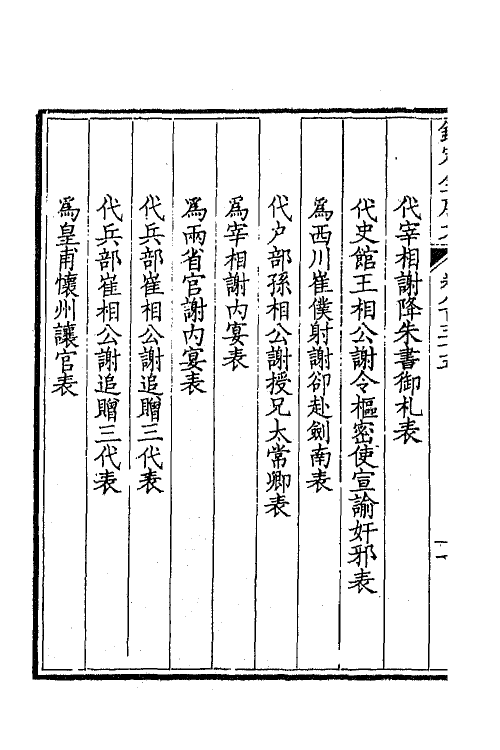 代宰相謝降朱書御札表
代史館王相公謝令樞密使宣諭奸邪表
爲西川崔僕射謝卻赴劍南表
代户部孫相公謝授兄太常卿表
爲宰相謝内宴表
爲兩省官謝内宴表
代兵部崔相公謝追贈三代表
代兵部崔相公謝追贈三代表
爲皇甫懷州讓官表